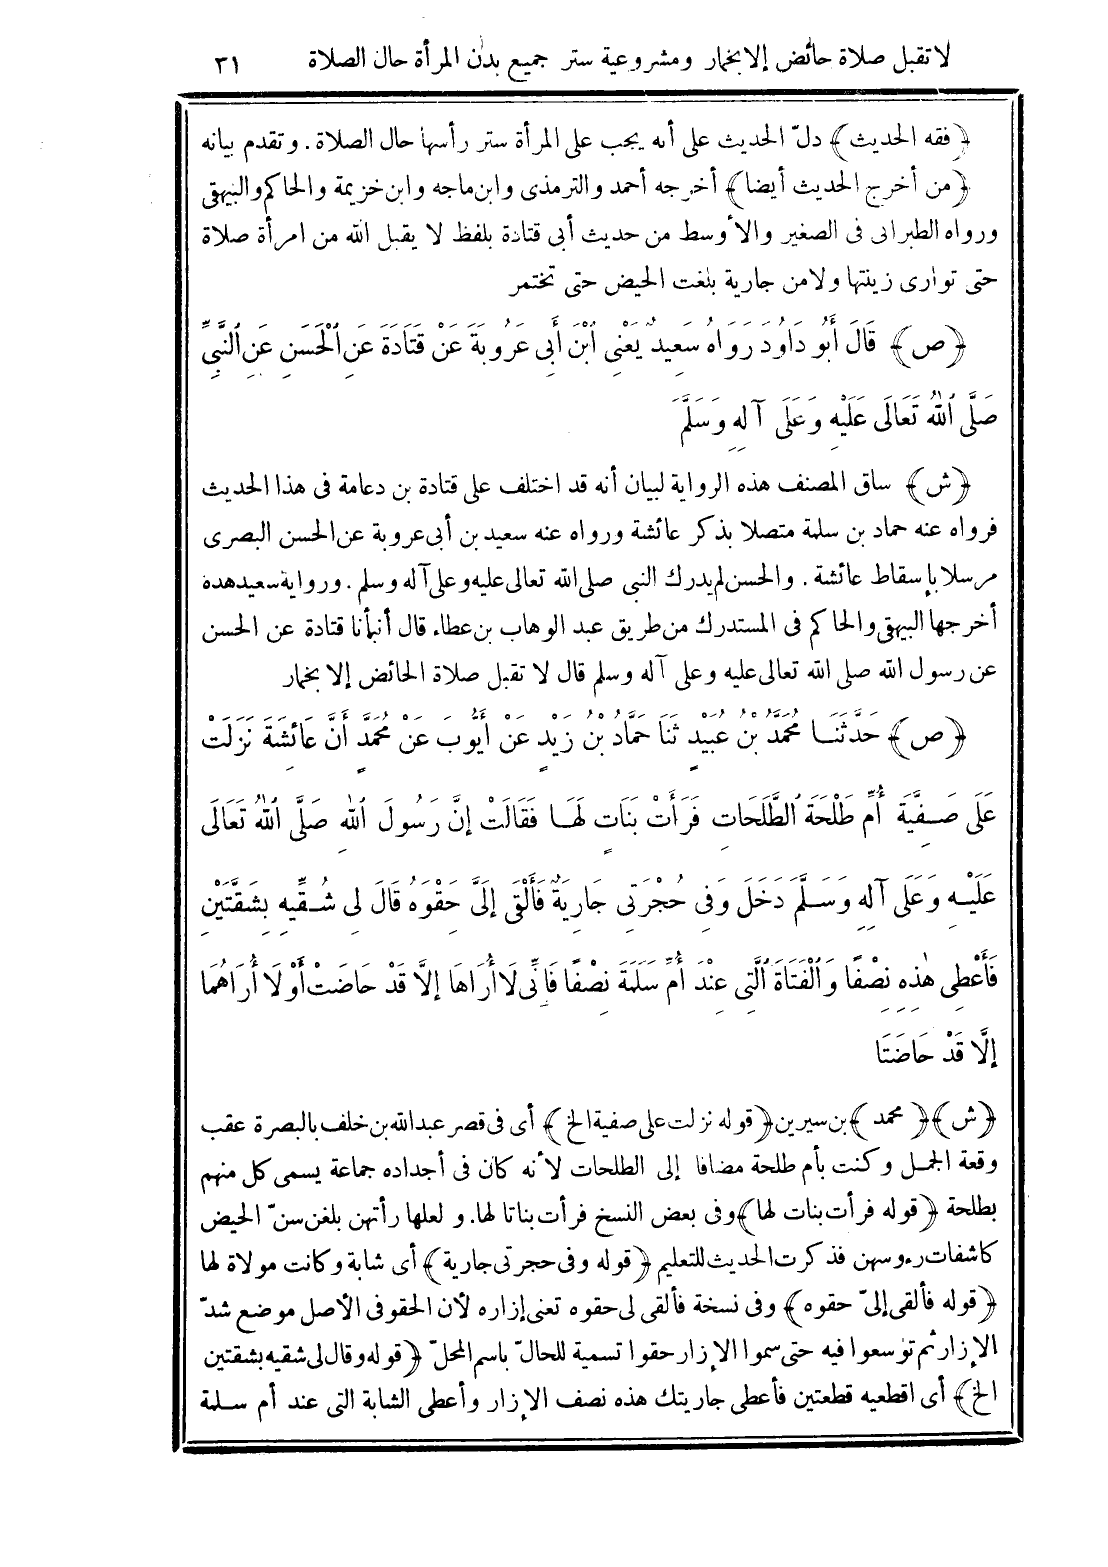 لا تقبل صلاة حائض إلا بخمار ومشروعية ستر جميع بدن المرأة حال الصلاة ٣١
﴿فقه الحديث﴾ دلّ الحديث على أنه يجب على المرأة ستر رأسها حال الصلاة. وتقدم بيانه
﴿من أخرج الحديث أيضا﴾ أخرجه أحمد والترمذى وابن ماجه وابن خزيمة والحاكم والبيهقى
ورواه الطبرانى فى الصغير والأوسط من حديث أبى قتادة بلفظ لا يقبل الله من امرأة صلاة
حتى توارى زينتها ولا من جارية بلغت الحيض حتى تختمر
﴿ص﴾ قَالَ أَبُو دَاوُدَ رَوَاهُ سَعِيدٌ يَعْنِى ابْنَ أَبِى عَرُوبَةَ عَنْ قَتَادَةَ عَنِ الْحَسَنِ عَنِ النَّبِىِّ
صَلَّى اللهُ تَعَالَى عَلَيْهِ وَعَلَى آلِهِ وَسَلَّمَ
﴿ش﴾ ساق المصنف هذه الرواية لبيان أنه قد اختلف على قتادة بن دعامة فى هذا الحديث
فرواه عنه حماد بن سلمة متصلا بذكر عائشة ورواه عنه سعيد بن أبى عروبة عن الحسن البصرى
مرسلا بإسقاط عائشة. والحسن لم يدرك النبى صلى الله تعالى عليه وعلى آله وسلم. ورواية سعيد هذه
أخرجها البيهقى والحاكم فى المستدرك من طريق عبد الوهاب بن عطاء قال أنبأنا قتادة عن الحسن
عن رسول الله صلى الله تعالى عليه وعلى آله وسلم قال لا تقبل صلاة الحائض إلا بخمار
﴿ص﴾ حَدَّثَنَا مُحَمَّدُ بْنُ عُبَيْدٍ ثَنَا حَمَّادُ بْنُ زَيْدٍ عَنْ أَيُّوبَ عَنْ مُحَمَّدٍ أَنَّ عَائِشَةَ نَزَلَتْ
عَلَى صَفِيَّةَ أُمِّ طَلْحَةَ الطَّلَحَاتِ فَرَأَتْ بَنَاتٍ لَهَا فَقَالَتْ إِنَّ رَسُولَ اللهِ صَلَّى اللهُ تَعَالَى
عَلَيْهِ وَعَلَى آلِهِ وَسَلَّمَ دَخَلَ وَفِى حُجْرَتِى جَارِيَةٌ فَأَلْقَى إِلَىَّ حَقْوَهُ قَالَ لِى شُقِّيهِ بِشَقَّتَيْنِ
فَأَعْطِى هٰذِهِ نِصْفًا وَالْفَتَاةَ الَّتِى عِنْدَ أُمِّ سَلَمَةَ نِصْفًا فَإِنِّى لَا أُرَاهَا إِلَّا قَدْ حَاضَتْ أَوْ لَا أُرَاهُمَا
إِلَّا قَدْ حَاضَتَا
﴿ش﴾﴿محمد﴾ بن سيرين ﴿قوله نزلت على صفية الخ﴾ أى فى قصر عبد الله بن خلف بالبصرة عقب
وقعة الجمل وكنت بأم طلحة مضافا إلى الطلحات لأنه كان فى أجداده جماعة يسمى كل منهم
بطلحة ﴿قوله فرأت بنات لها﴾ وفى بعض النسخ فرأت بناتا لها. ولعلها رأتهن بلغن سنّ الحيض
كاشفات رءوسهن فذكرت الحديث للتعليم ﴿قوله وفى حجرتى جارية﴾ أى شابة وكانت مولاة لها
﴿قوله فألقى إلىّ حقوه﴾ وفى نسخة فألقى لى حقوه تعنى إزاره لأن الحقو فى الأصل موضع شدّ
الإزار ثم توسعوا فيه حتى سموا الإزار حقوا تسمية للحالّ باسم المحلّ ﴿قوله وقال لى شقيه بشقتين
الخ﴾ أى اقطعيه قطعتين فأعطى جاريتك هذه نصف الإزار وأعطى الشابة التى عند أم سلمة